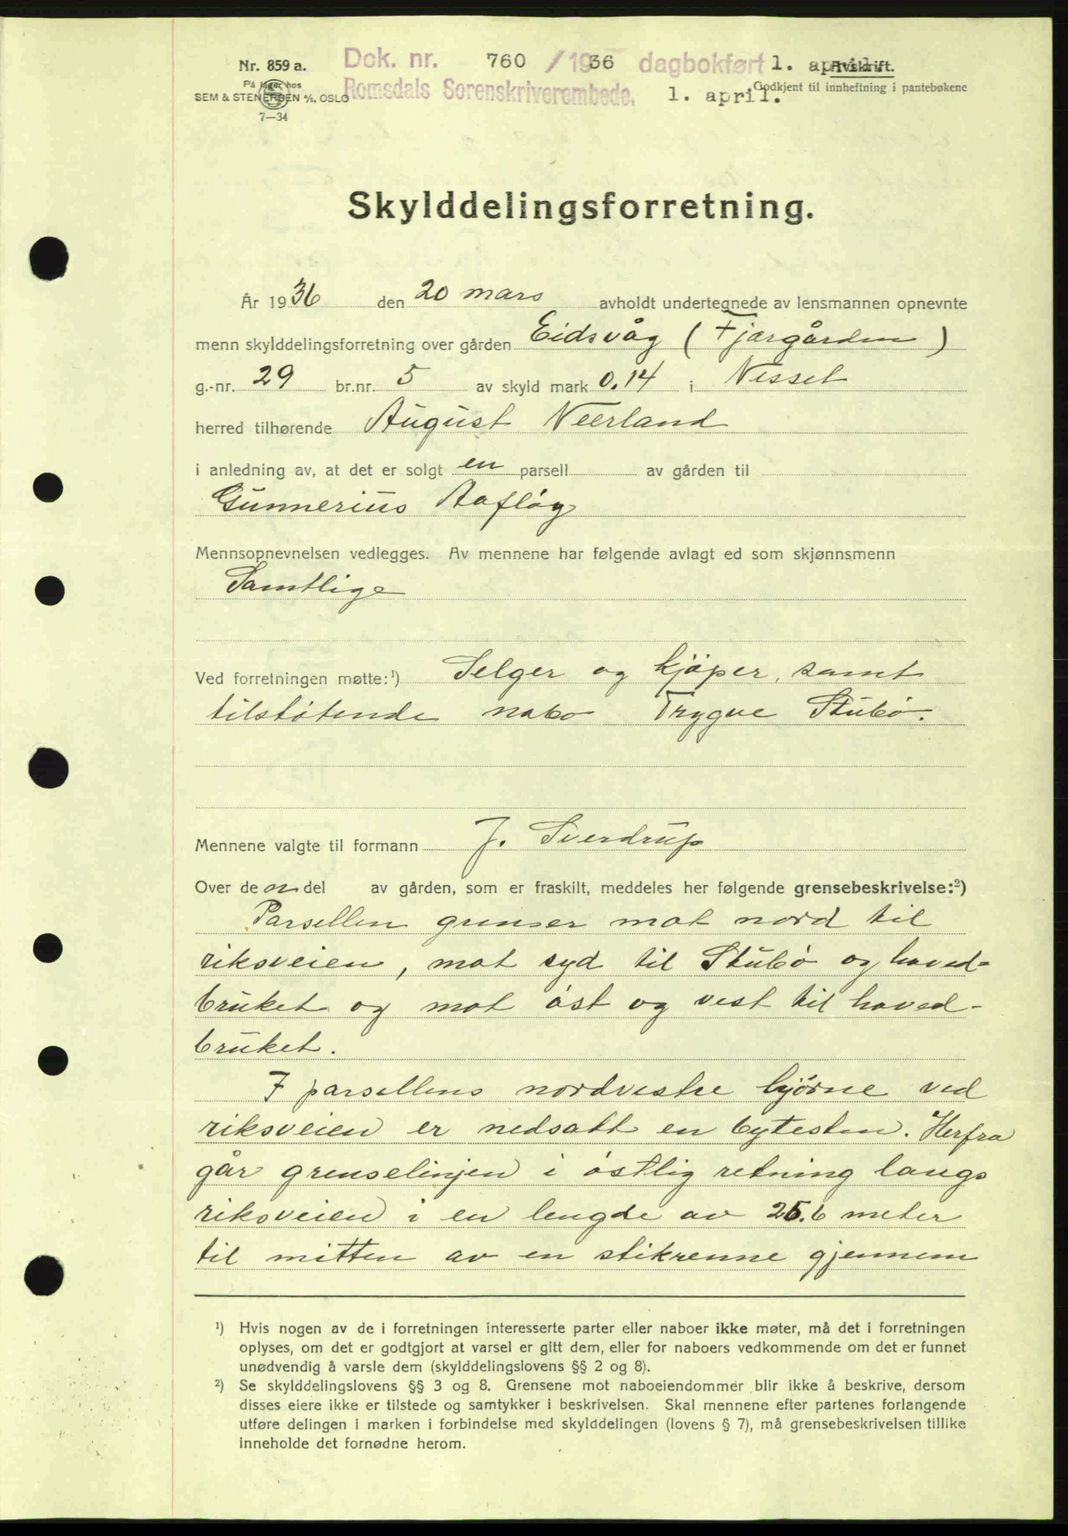 Nr. 859 a.
Dok. nr. 760 / 1936 dagbokført 1. april.
Avskrift.
På lager hos
SEM & STENERSEN A/S, OSLO
Romsdals Sorenskriverembede, 1. april.
Godkjent til innheftning i pantebøkene
7—34
Skylddelingsforretning.
År 1936 den 20 mars avholdt undertegnede av lensmannen opnevnte
menn skylddelingsforretning over gården Eidsvåg (Fjærgården)
g.-nr. 29 br.nr. 5 av skyld mark 0.14 i Nesset
herred tilhørende August Neerland
i anledning av, at det er solgt en parsell av gården til
Gunnerius Aafløy
Mennsopnevnelsen vedlegges. Av mennene har følgende avlagt ed som skjønnsmenn
Samtlige
Ved forretningen møtte:¹) Selger og kjøper, samt
tilstøtende nabo Trygve Stubø.
Mennene valgte til formann J. Sverdrup
Over de n del av gården, som er fraskilt, meddeles her følgende grensebeskrivelse:²)
Parsellen grenser mot nord til
riksveien, mot syd til Stubø og hoved=
bruket og mot øst og vest til hoved-
bruket.
I parsellens nordvestre hjørne ved
riksveien er nedsatt en bytesten. Herfra
går grenselinjen i østlig retning langs
riksveien i en lengde av 25.6 meter
til mitten av en stikrenne gjennem
¹) Hvis nogen av de i forretningen interesserte parter eller naboer ikke møter, må det i forretningen
oplyses, om det er godtgjort at varsel er gitt dem, eller for naboers vedkommende om det er funnet
unødvendig å varsle dem (skylddelingslovens §§ 2 og 8).
²) Se skylddelingslovens §§ 3 og 8. Grensene mot naboeiendommer blir ikke å beskrive, dersom
disses eiere ikke er tilstede og samtykker i beskrivelsen. Skal mennene efter partenes forlangende
utføre delingen i marken i forbindelse med skylddelingen (lovens § 7), må grensebeskrivelsen tillike
inneholde det fornødne herom.